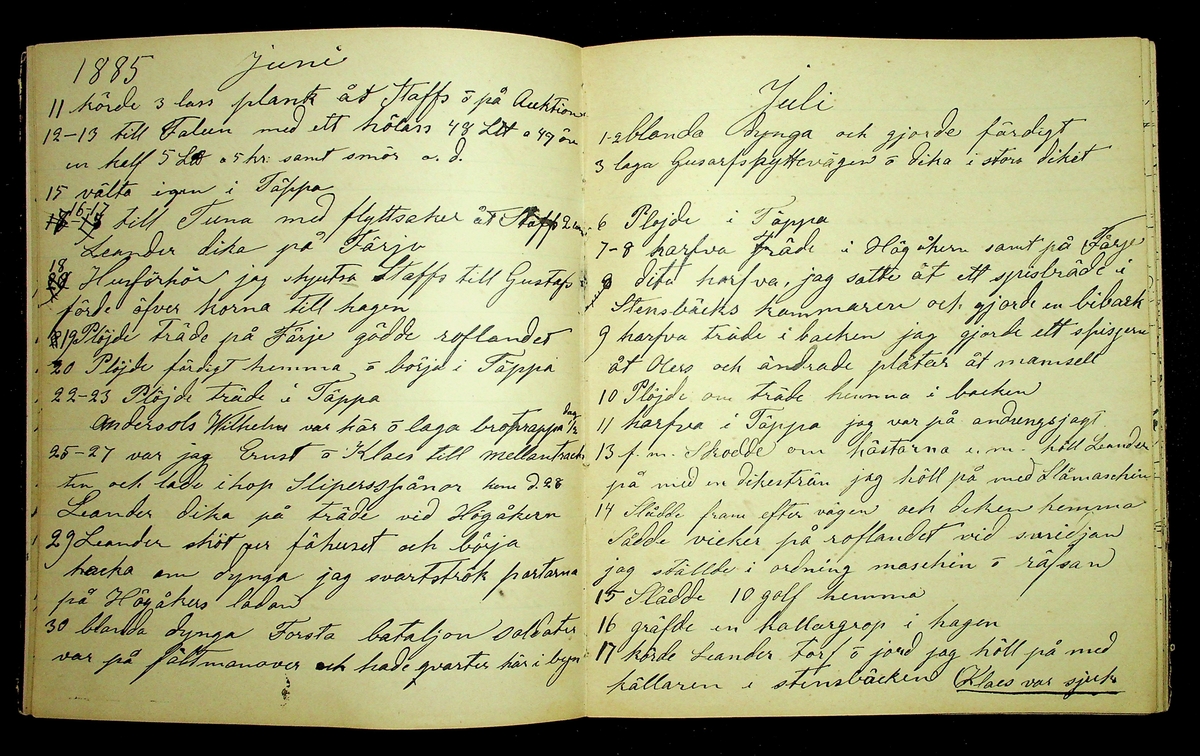 1885 Juni
11 körde 3 lass plank åt Staffs ō på Auktion
12-13 till Falun med ett hölass 48 L a 49 öre
en kalf 5 L a 5 kr: samt smör o. d.
15 välta igen i Täppa
16-17 till Tuna med flyttsaker åt Staffs 2
Leander dika på Färje
18 Husförhör jag skjutsa Staffs till Gustafs
förde öfver korna till hagen
19 Plöjde träde på Färje gödde roflandet
20 Plöjde färdigt hemma ō börja i Täppa
22-23 Plöjde träde i Täppa
Anderools Wilhelm var här ō laga brotrappa dag 1/2
25-27 var jag Ernst ō Klaes till mellantrach
ten och lade ihop Slipersspånor hem d. 28
Leander dika på träde vid Högåkern
29 Leander sköt per fähuset och börja
hacka om dynga jag svartströk portarna
på Högåkers ladan
30 blanda dynga Första bataljon soldater
var på fältmanöver och hade qvarter här i byn
Juli
1-2 blanda dynga och gjorde färdigt
3 laga Gusarfspyttevägen ō dika i stora diket
6 Plöjde i Täppa
7-8 harfva träde i Högåkern samt på Färje
8 dito harfva, jag satte åt ett spisbräde i
Stensbäcks kammaren och gjorde en bibark
9 harfva träde i backen jag gjorde ett spisjern
åt Olers och ändrade plåtar åt mamsell
10 Plöjde om träde hemma i backen
11 harfva i Täppa jag var på andungsjagt
13 f. m. Skodde om hästarna e. m. höll Leander
på med en dikesträn jag höll på med Slåmaschin
14 Slådde fram efter vägen och diken hemma
Sådde vicker på roflandet vid smidjan
jag ställde i ordning maschin ō räfsan
15 Slådde 10 golf hemma
16 gräfde en kallargrop i hagen
17 körde Leander torf ō jord jag höll på med
källaren i stensbäcken Klaes var sjuk